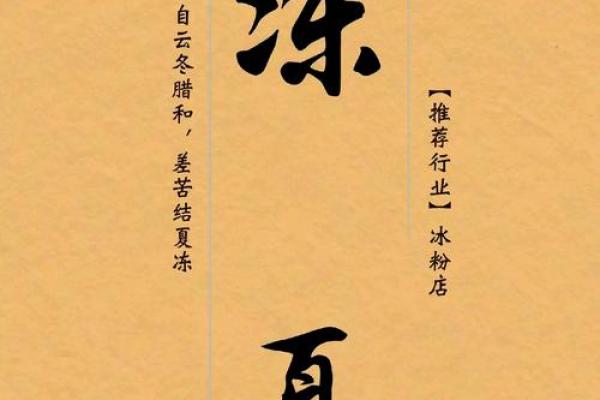 【推荐行业】冰粉店
冻
夏
自云冬腊和，差苦结夏冻